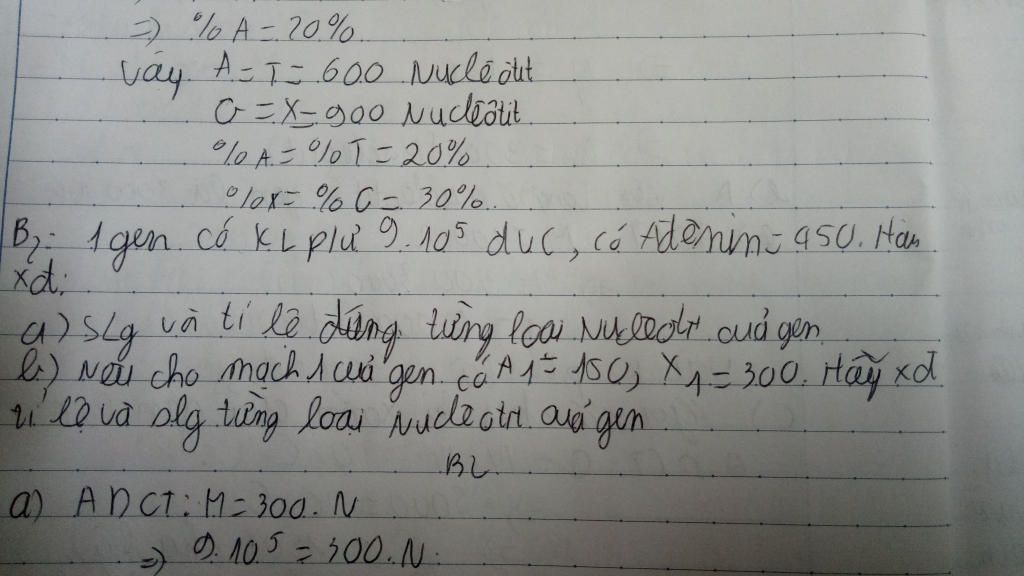 =) %A = 20%
Vậy A = T = 600 Nuclêôtit
G = X = 900 Nuclêôtit
%A = %T = 20%
%X = %G = 30%
B2: 1 gen có KL ptử 9.10^5 đvC, có Ađênin = 450. Hãy
xđ:
a) SLg và tỉ lệ từng loại Nuclêôtit của gen
b) Nếu cho mạch 1 của gen có A1 = 150, X1 = 300. Hãy xđ
tỉ lệ và slg từng loại Nuclêôtit của gen
BL
a) ADCT: M = 300.N
=) 9.10^5 = 300.N